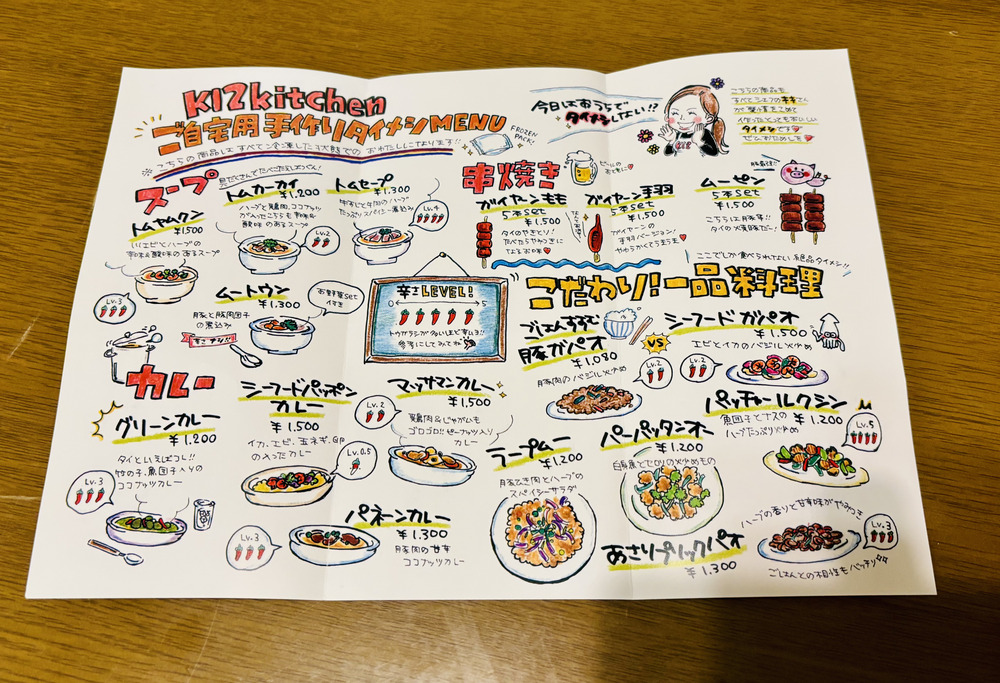 K12kitchen
ご自宅用手作りタイメシMENU
FROZEN
PACK!
こちらの商品はすべて冷凍した状態でのおわたしになります!!
今日はおうちで
タイメシしたい!?
こちらの商品も
すべてシェフの
作ったとってもおいしい
タイメシです
スープ
トムヤムクン
¥1500
エビとハーブの
辛味&酸味のあるスープ
Lv.3
トムカーカイ
¥1,200
ハーブと鶏肉、ココナッツ
が入ったこちらも辛味&
酸味のあるスープ
Lv.2
トムセープ
¥1.300
牛すじと牛肉のハーブ
たっぷりスパイシー煮込み
Lv.4
ムートウン
¥1.300
豚と豚肉団子
の煮込み
辛さナシ!!
お野菜set
付き
辛さLEVEL!
0
5
トウガラシが多いほど辛いよ!!
参考にしてみてね
串焼き
ビールの
おともに
ガイヤーンもも
5本set
¥1.500
タイのやきとり!
たべたらやみつきに
なるお味
ガイヤーン手羽
5本set
¥1.500
ガイヤーンの
手羽バージョン!
やわらかくてうまうま
ムーピン
5本set
¥1.500
こちらは豚串!!
タイの大衆味だー!
ここでしか食べられない絶品タイメシ!!
こだわり!一品料理
ごはんすすむ
豚ガパオ
¥1,080
豚肉のバジル炒め
Lv.2
VS
シーフードガパオ
¥1.500
エビとイカのバジル炒め
Lv.2
パッチャールクシン
魚団子とナスの
ハーブたっぷり炒め
¥1.200
Lv.5
ラープムー
¥1.200
豚ひき肉とハーブの
スパイシーサラダ
パーパッタンオー
¥1.200
白身魚とセロリの炒めもの
あさりプリックパオ
¥1.300
ハーブの香りと甘辛味がやみつき
Lv.3
ごはんとの相性もバッチリ
カレー
グリーンカレー
¥1.200
タイといえばコレ!!
竹の子、魚団子入りの
ココナッツカレー
Lv.3
シーフードパッポン
カレー
¥1.500
イカ、エビ、玉ネギ、卵
の入ったカレー
Lv.0.5
マッサマンカレー
¥1,500
鶏肉&じゃがいも
ゴロゴロ!!ピーナッツ入り
カレー
Lv.2
パネーンカレー
¥1.300
豚肉の甘辛
ココナッツカレー
Lv.3